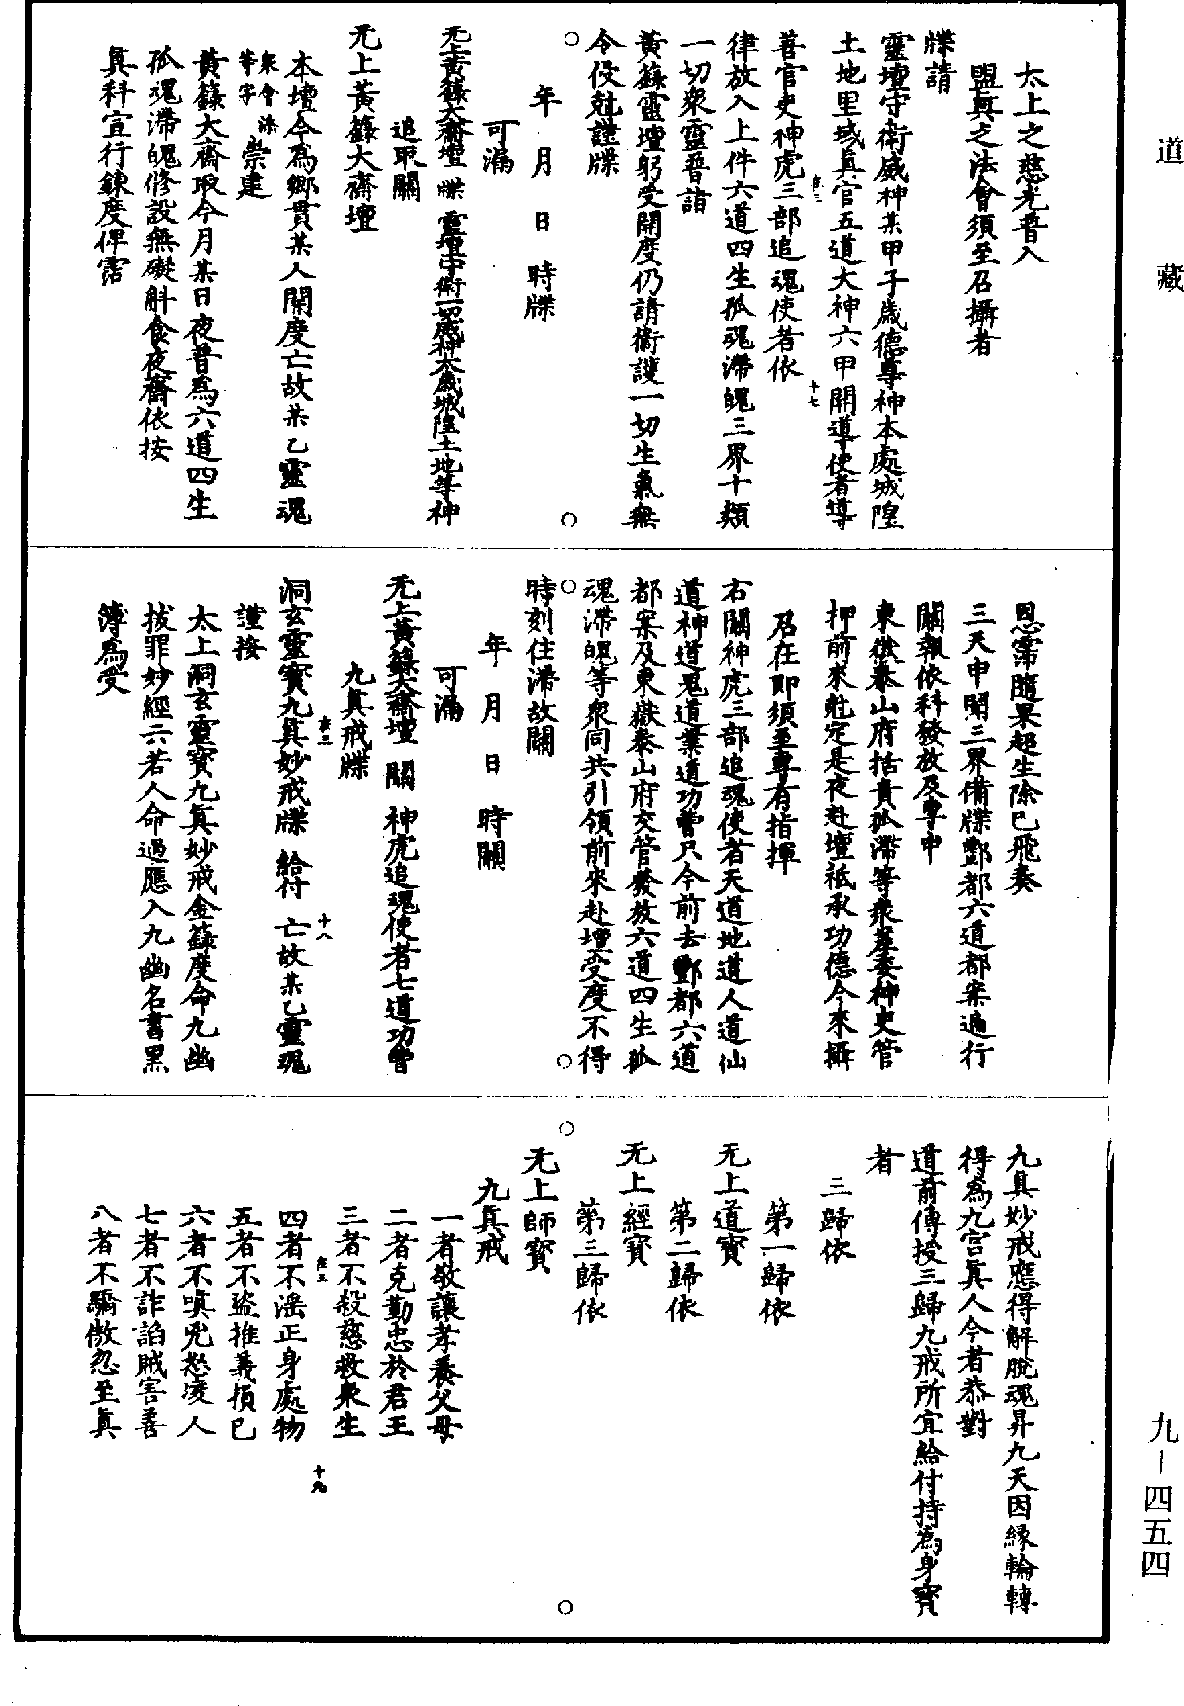 道藏
太上之慈光普入
盟真之法會須至召攝者
牒請
靈壇守衛威神某甲子歲德尊神本處城隍
土地里域真官五道大神六甲開導使者導
十七
善官吏神虎三部追魂使者依
律放入上件六道四生孤魂滯魄三界十類
一切衆靈普詣
黃籙靈壇躬受開度仍請衛護一切生氣無
令侵尅謹牒
年 月 日 時牒
可漏
无上黃籙大齋壇 牒 靈壇守衛一切威神太歲城隍土地等神
追取關
无上黃籙大齋壇
本壇今爲鄉貫某人開度亡故某乙靈魂
衆會添等字 崇建
黃籙大齋取今月某日夜普爲六道四生
孤魂滯魄修設無礙斛食夜齋依按
真科宣行鍊度俾霑
恩霈隨果超生除已飛奏
三天申聞三界備牒酆都六道都案遍行
關報依科發放及專申
東嶽泰山府括責孤滯等衆差委神吏管
押前來尅定是夜赴壇祗承功德今來攝
召在即須至專有指揮
右關神虎三部追魂使者天道地道人道仙
道神道鬼道業道功曹只今前去酆都六道
都案及東嶽泰山府交管發放六道四生孤
魂滯魄等衆同共引領前來赴壇受度不得
時刻住滯故關
年 月 日 時關
可漏
无上黃籙大齋壇 關 神虎追魂使者七道功曹
九真戒牒
洞玄靈寶九真妙戒牒 給付 亡故某乙靈魂
十八
謹按
太上洞玄靈寶九真妙戒金籙度命九幽
拔罪妙經云若人命過應入九幽名書黑
簿爲受
九真妙戒應得解脫魂昇九天因緣輪轉
得爲九宮真人今者恭對
道前傳授三歸九戒所宜給付持爲身寶
者
三歸依
第一歸依
无上道寶
第二歸依
无上經寶
第三歸依
无上師寶
九真戒
一者敬讓孝養父母
二者克勤忠於君王
三者不殺慈救衆生
四者不淫正身處物
十九
五者不盜推義損己
六者不嗔兇怒凌人
七者不詐諂賊害善
八者不驕傲忽至真
九-四五四